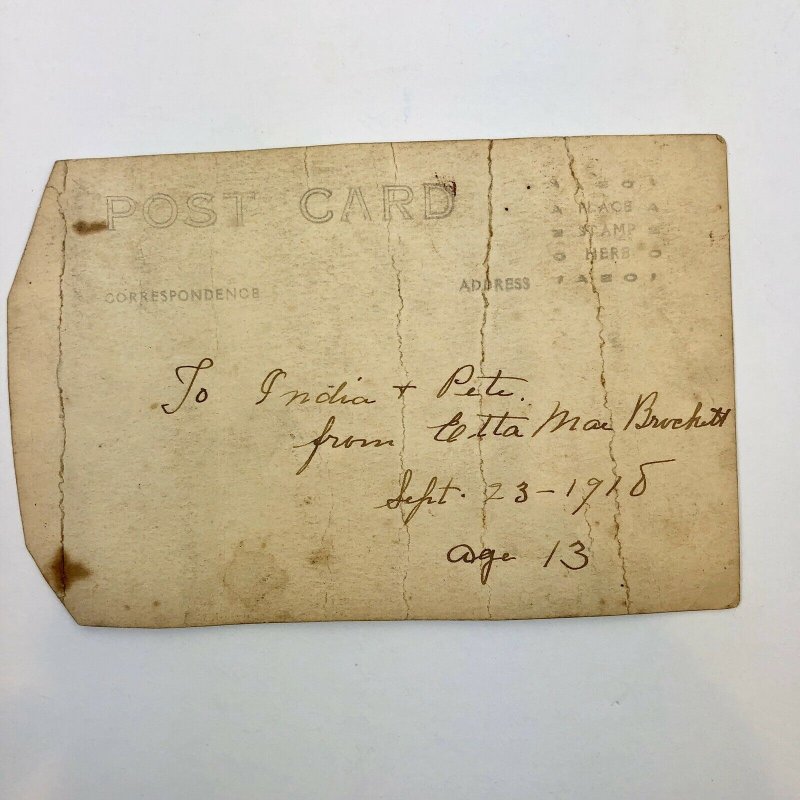 POST CARD
AZO
PLACE
STAMP
HERE
AZO
CORRESPONDENCE ADDRESS
To India + Pete.
from Etta Mae Brockett
Sept. 23-1918
age 13